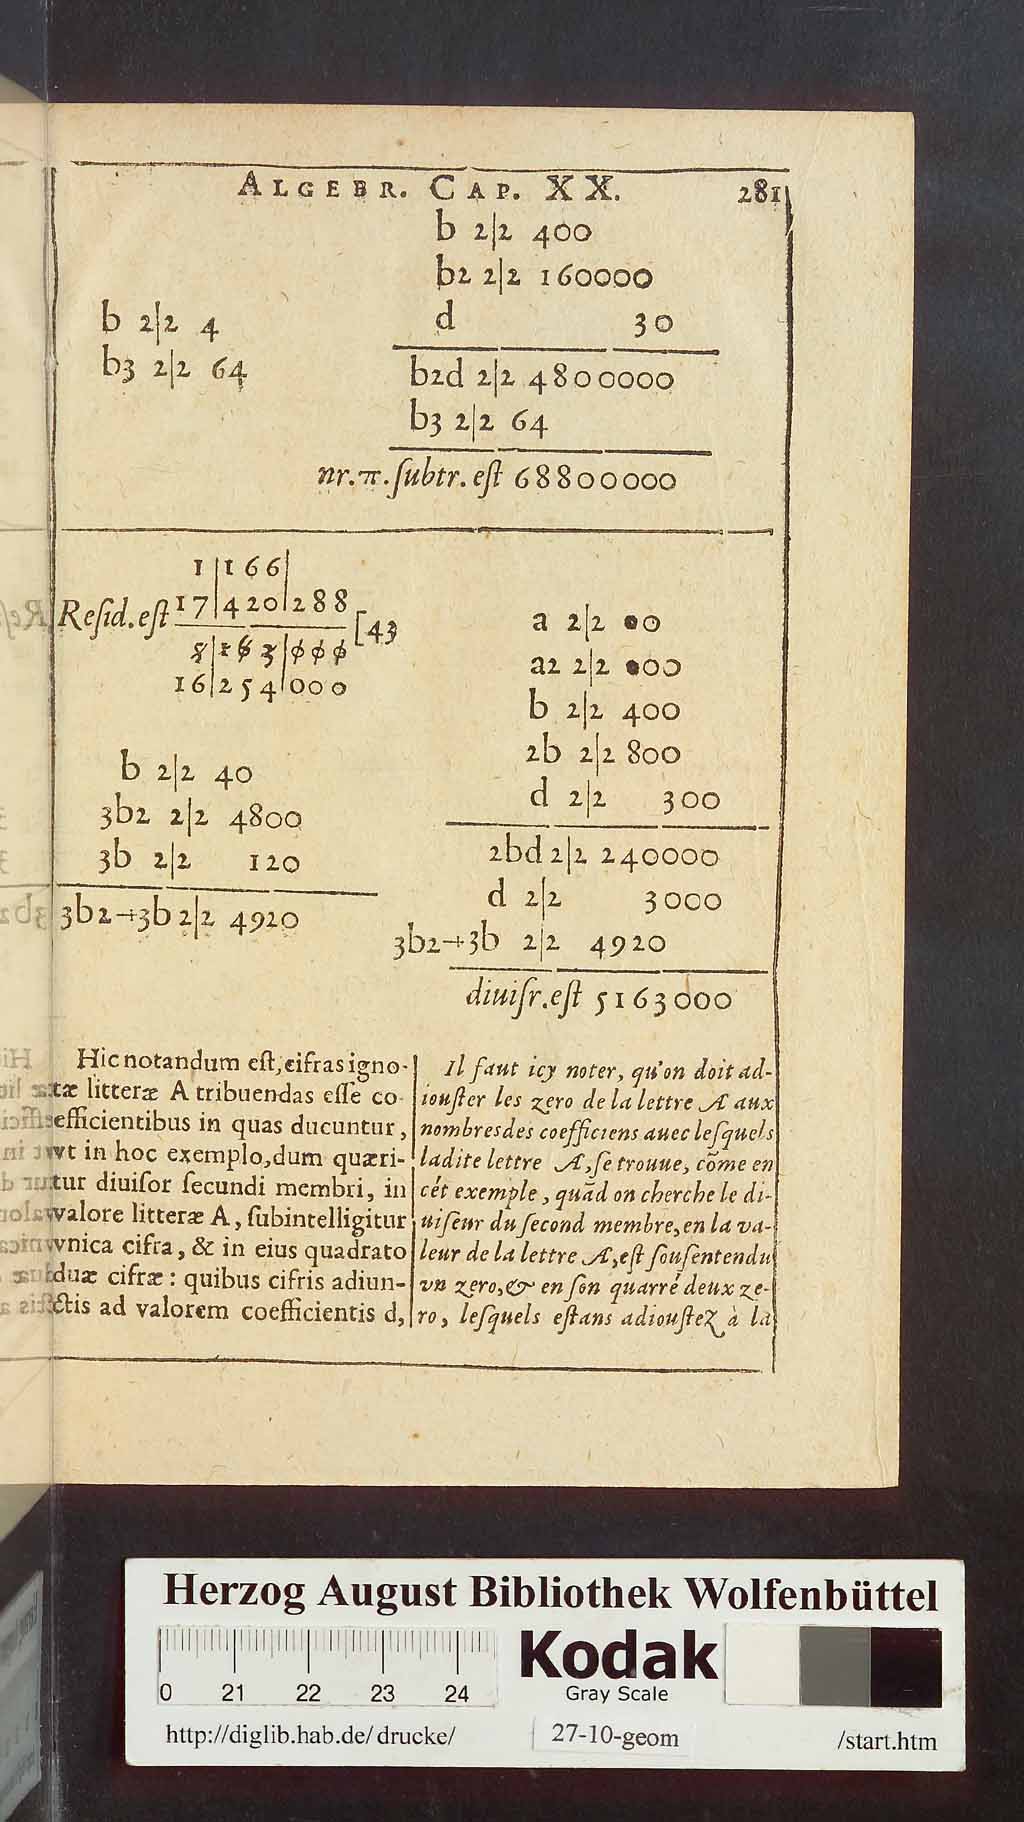 ALGEBR. CAP. XX. 281
b 2|2 400
b2 2|2 160000
d 30
b2d 2|2 4800000
b3 2|2 64
nr.π.ſubtr.eſt 68800000
b 2|2 4
b3 2|2 64
1|166|
Reſid.eſt 17|420|288 [43
8|163|000
16|254|000
b 2|2 40
3b2 2|2 4800
3b 2|2 120
3b2+3b 2|2 4920
a 2|2 00
a2 2|2 000
b 2|2 400
2b 2|2 800
d 2|2 300
2bd 2|2 240000
d 2|2 3000
3b2+3b 2|2 4920
diuiſr.eſt 5163000
Hic notandum eſt, cifras igno-
tæ litteræ A tribuendas eſſe co-
efficientibus in quas ducuntur,
vt in hoc exemplo, dum quæri-
tur diuiſor ſecundi membri, in
valore litteræ A, ſubintelligitur
vnica cifra, & in eius quadrato
duæ cifræ: quibus cifris adiun-
ctis ad valorem coefficientis d,
Il faut icy noter, qu'on doit ad-
iouſter les zero de la lettre A aux
nombres des coefficiens auec leſquels
ladite lettre A, ſe trouue, cõme en
cét exemple, quãd on cherche le di-
uiſeur du ſecond membre, en la va-
leur de la lettre A, eſt ſouſentendu
vn zero, & en ſon quarré deux ze-
ro, leſquels eſtans adiouſtez à la
Herzog August Bibliothek Wolfenbüttel
Kodak
Gray Scale
0 21 22 23 24
http://diglib.hab.de/drucke/ 27-10-geom /start.htm